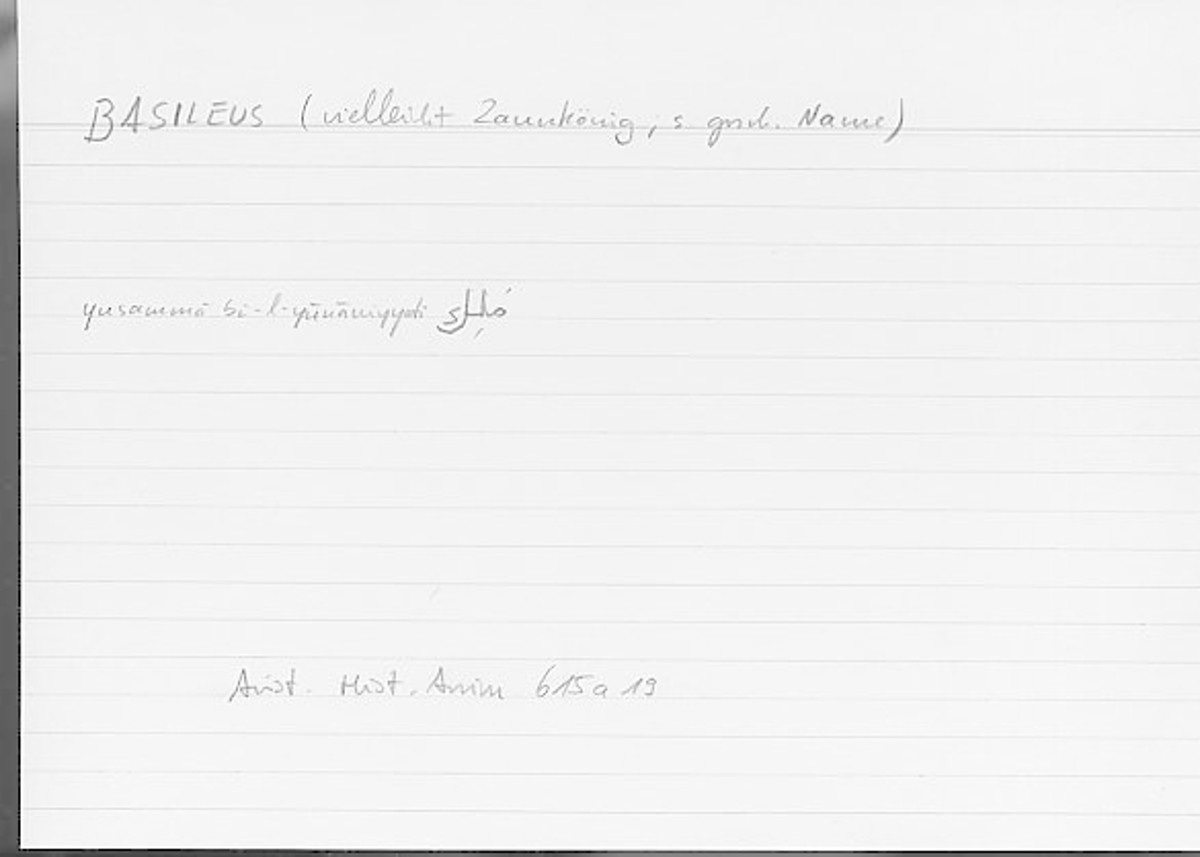 BASILEUS (vielleicht Zaunkönig, s. griech. Name)
yusammā bi-l-yūnāniyyati
Arist. Hist. Anim 615a 19